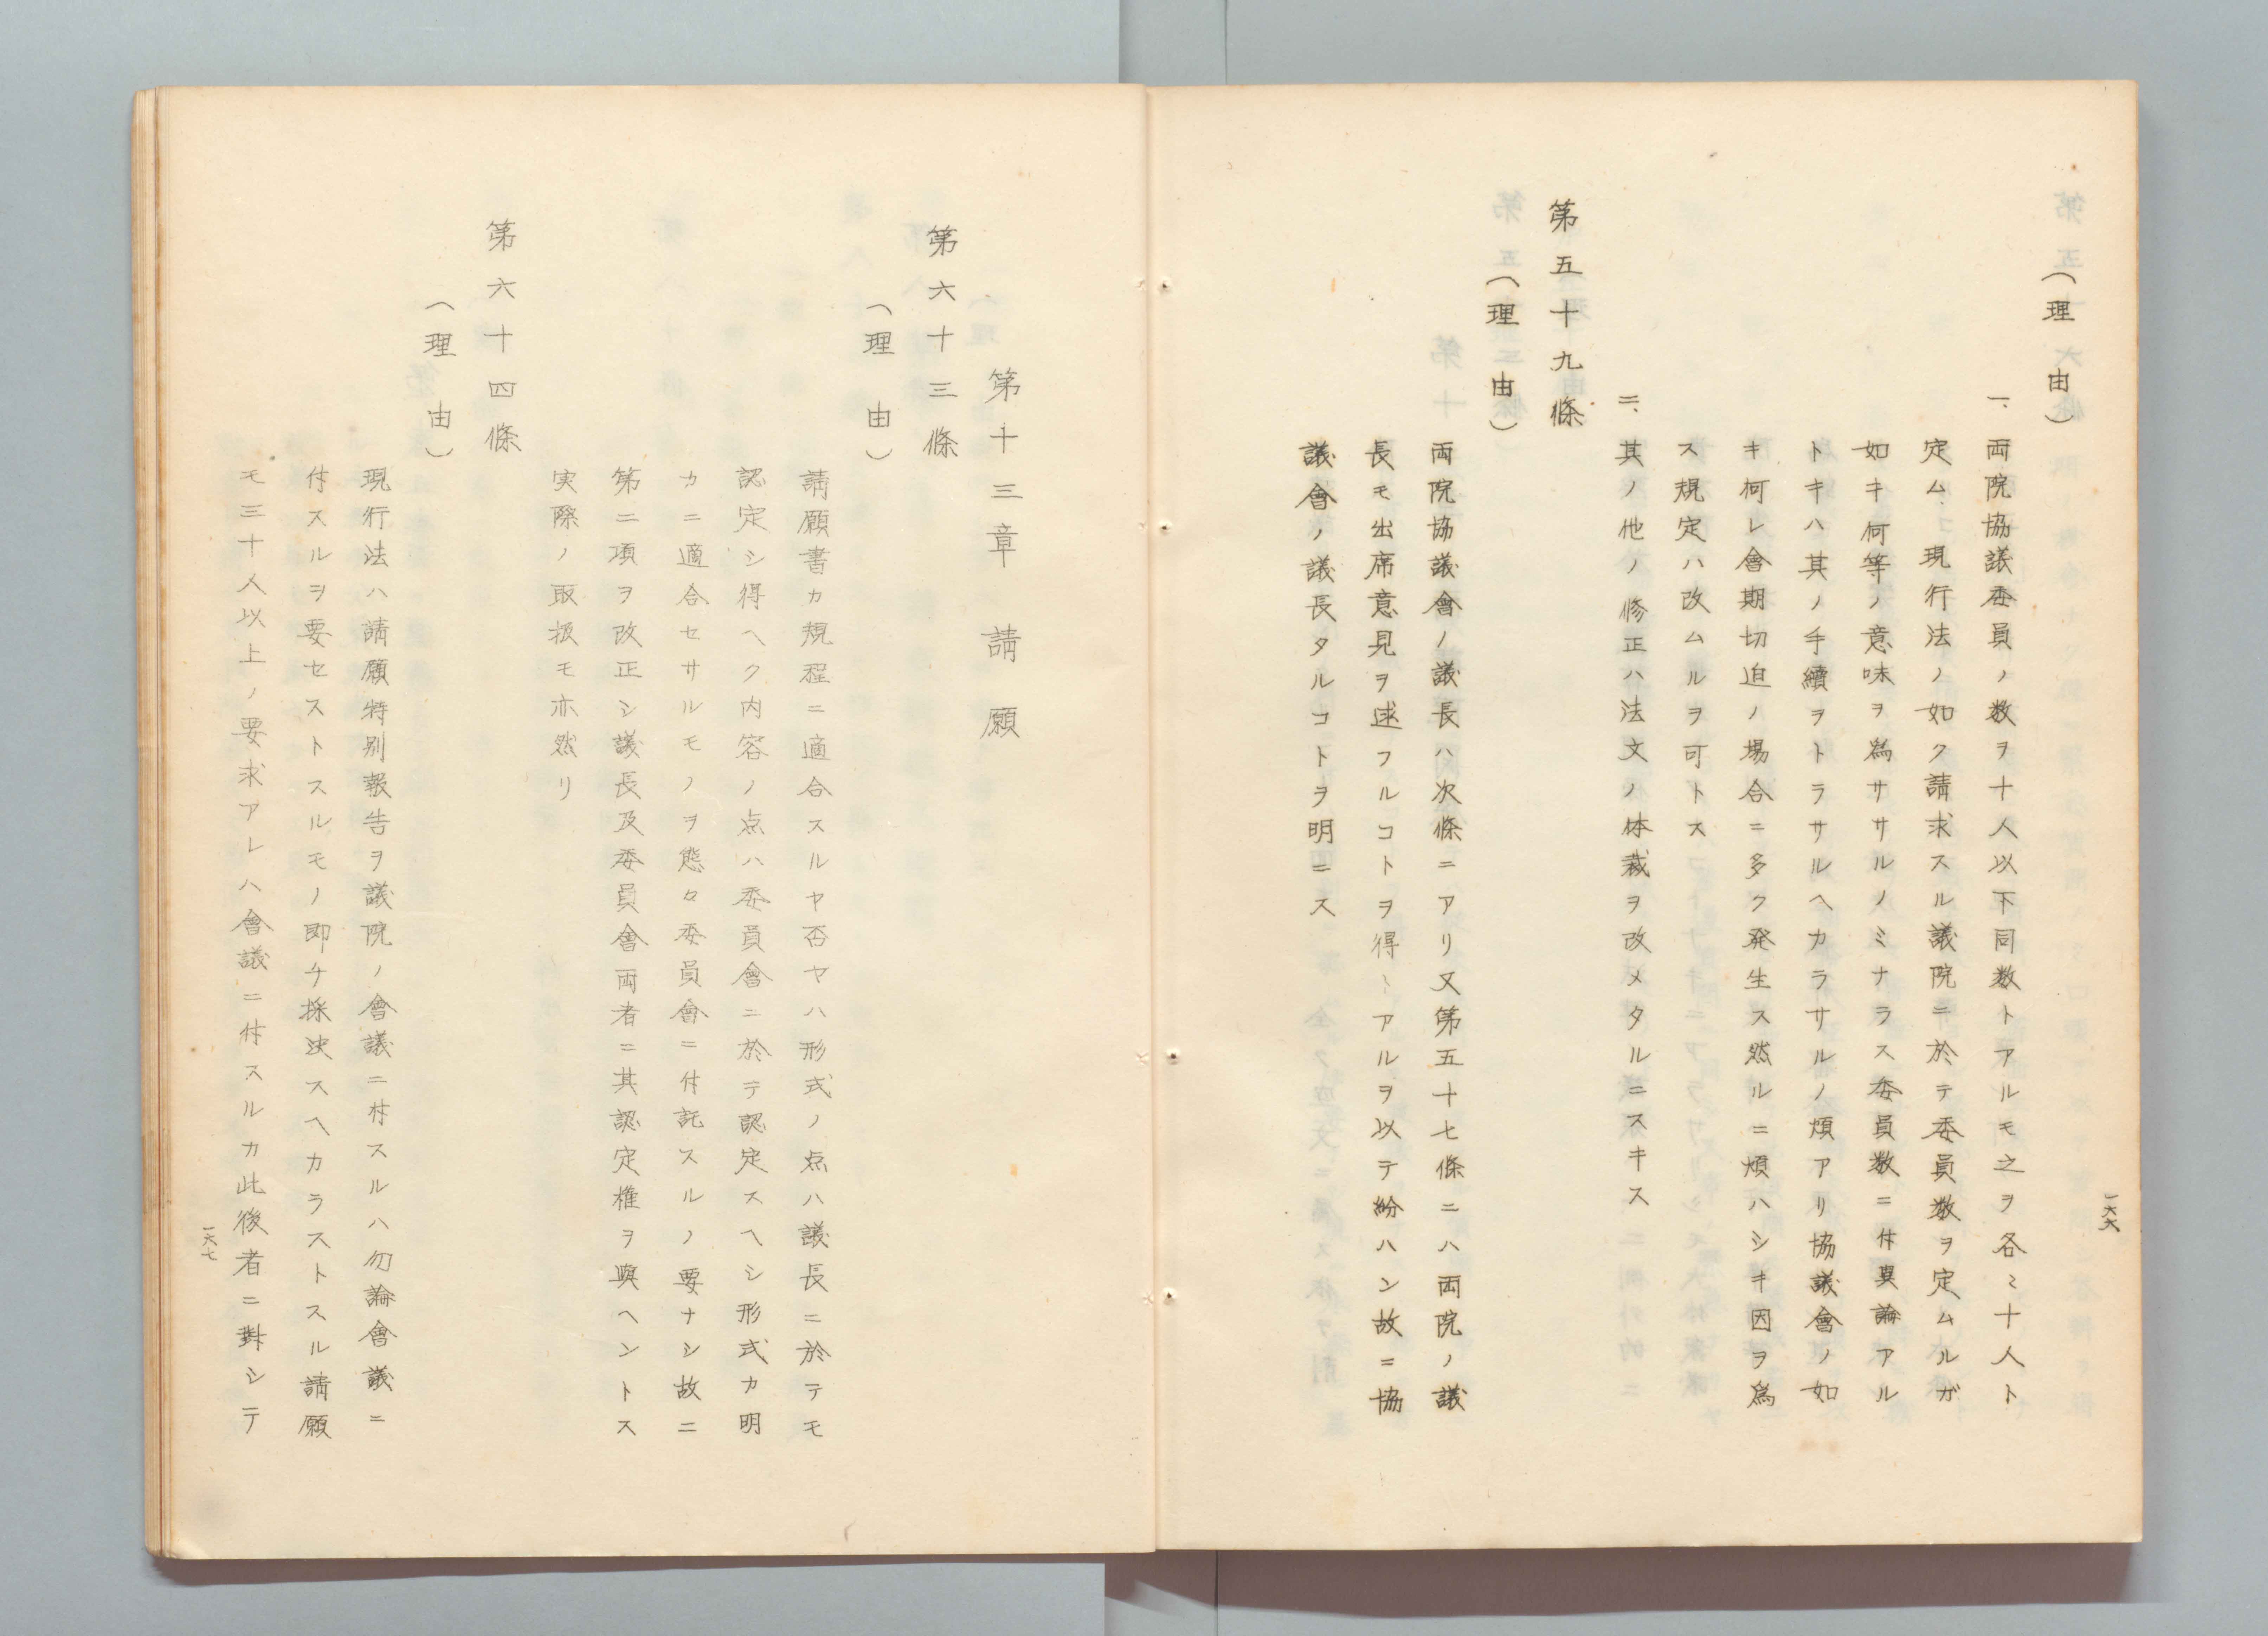 (理由)
一、両院協議委員ノ数ヲ十人以下同数トアルモ之ヲ各〻十人ト
定ム、現行法ノ如ク請求スル議院ニ於テ委員数ヲ定ムルガ
如キ何等ノ意味ヲ為ササルノミナラス委員数ニ付異論アル
トキハ其ノ手續ヲトラサルヘカラサルノ煩アリ協議會ノ如
キ何レ會期切迫ノ場合ニ多ク発生ス然ルニ煩ハシキ因ヲ為
ス規定ハ改ムルヲ可トス
二、其ノ他ノ修正ハ法文ノ体裁ヲ改メタルニスキス
第五十九條
(理由)
両院協議會ノ議長ハ次條ニアリ又第五十七條ニハ両院ノ議
長モ出席意見ヲ述フルコトヲ得〻アルヲ以テ紛ハン故ニ協
議會ノ議長タルコトヲ明ニス
一六六
第十三章 請願
第六十三條
(理由)
請願書カ規程ニ適合スルヤ否ヤハ形式ノ点ハ議長ニ於テモ
認定シ得ヘク内容ノ点ハ委員會ニ於テ認定スヘシ形式カ明
カニ適合セサルモノヲ態々委員會ニ付託スルノ要ナシ故ニ
第二項ヲ改正シ議長及委員會両者ニ其認定権ヲ與ヘントス
実際ノ取扱モ亦然リ
第六十四條
(理由)
現行法ハ請願特別報告ヲ議院ノ會議ニ付スルハ勿論會議ニ
付スルヲ要セストスルモノ即チ採決スヘカラストスル請願
モ三十人以上ノ要求アレハ會議ニ付スルカ此後者ニ對シテ
一六七